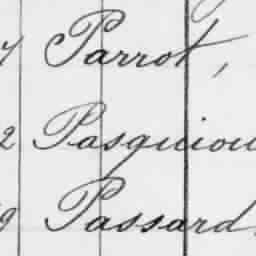 7 Parrot,
2 Pasquiou
9 Passard